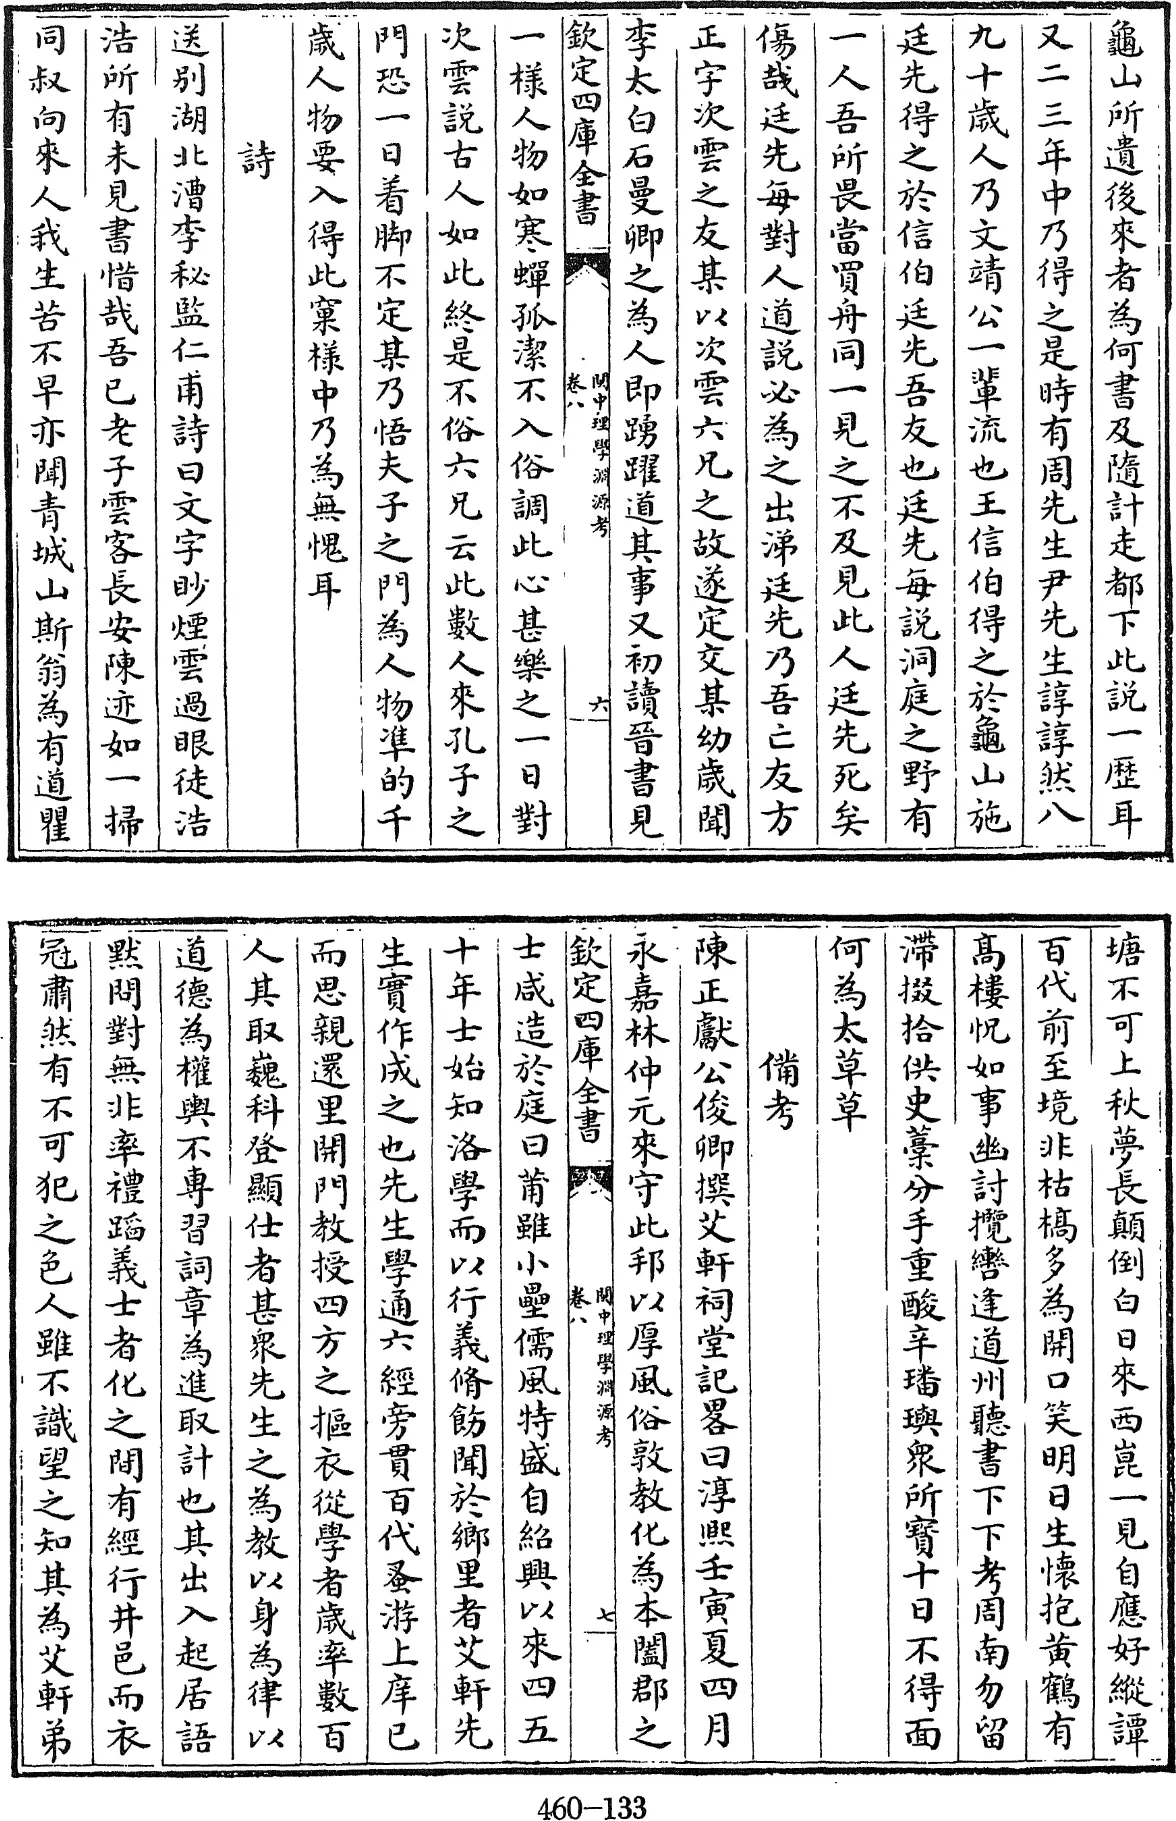 龜山所遺後來者為何書及隨計走都下此説一歴耳
又二三年中乃得之是時有周先生尹先生諄諄然八
九十歳人乃文靖公一輩流也王信伯得之於龜山施
廷先得之於信伯廷先吾友也廷先每説洞庭之野有
一人吾所畏當買舟同一見之不及見此人廷先死矣
傷哉廷先每對人道説必為之出涕廷先乃吾亡友方
正字次雲之友某以次雲六兄之故遂定交某幼歳聞
李太白石曼卿之為人即踴躍道其事又初讀晉書見
欽定四庫全書
閩中理學淵源考
卷八
六
一様人物如寒蟬孤潔不入俗調此心甚樂之一日對
次雲説古人如此終是不俗六兄云此數人來孔子之
門恐一日着脚不定某乃悟夫子之門為人物凖的千
歳人物要入得此窠様中乃為無愧耳
詩
送别湖北漕李秘監仁甫詩曰文字眇煙雲過眼徒浩
浩所有未見書惜哉吾已老子雲客長安陳迹如一掃
同叔向來人我生苦不早亦聞青城山斯翁為有道瞿
塘不可上秋夢長顛倒白日來西崑一見自應好縱譚
百代前至境非枯槁多為開口笑明日生懷抱黄鶴有
髙樓怳如事幽討攬轡逢道州聽書下下考周南勿留
滯掇拾供史藁分手重酸辛璠璵衆所寳十日不得面
何為太草草
備考
陳正獻公俊卿撰艾軒祠堂記畧曰淳熙壬寅夏四月
永嘉林仲元來守此邦以厚風俗敦教化為本闔郡之
欽定四庫全書
閩中理學淵源考
卷八
七
士咸造於庭曰莆雖小壘儒風特盛自紹興以來四五
十年士始知洛學而以行義脩飭聞於鄉里者艾軒先
生實作成之也先生學通六經旁貫百代蚤游上庠已
而思親還里開門教授四方之摳衣從學者歳率數百
人其取巍科登顯仕者甚衆先生之為教以身為律以
道德為權輿不專習詞章為進取計也其出入起居語
黙問對無非率禮蹈義士者化之間有經行井邑而衣
冠肅然有不可犯之色人雖不識望之知其為艾軒弟
460-133